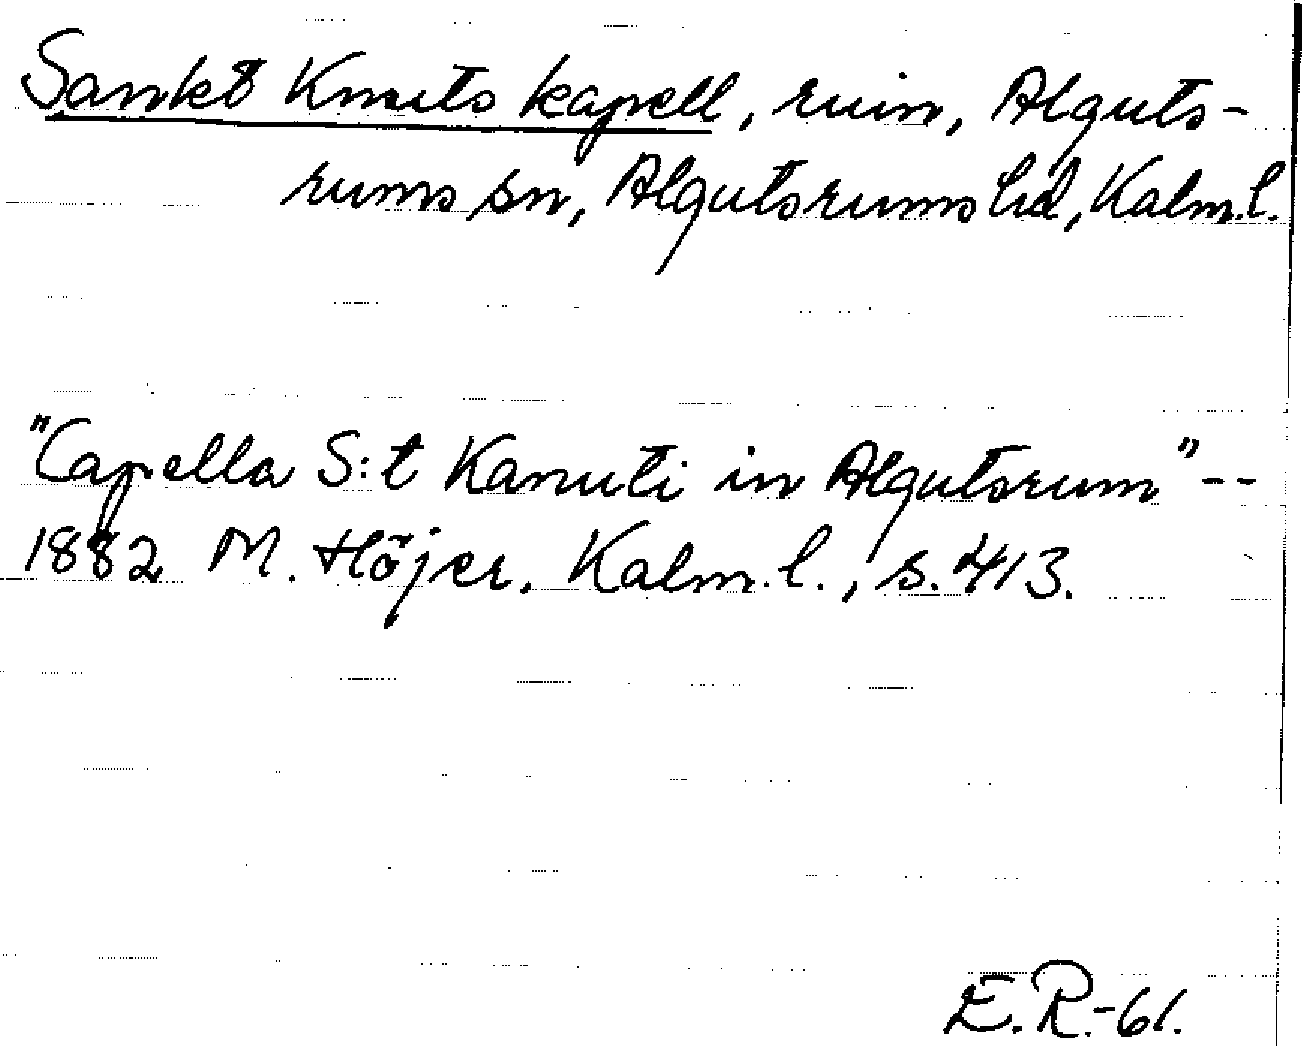 Sankt Knuts kapell, ruin, Alguts-
rums sn, Algutsrums hd, Kalm.l.
"Capella S:t Kanuti in Algutsrum" --
1882 M. Höjer, Kalm.l., s. 413.
E.R.-61.